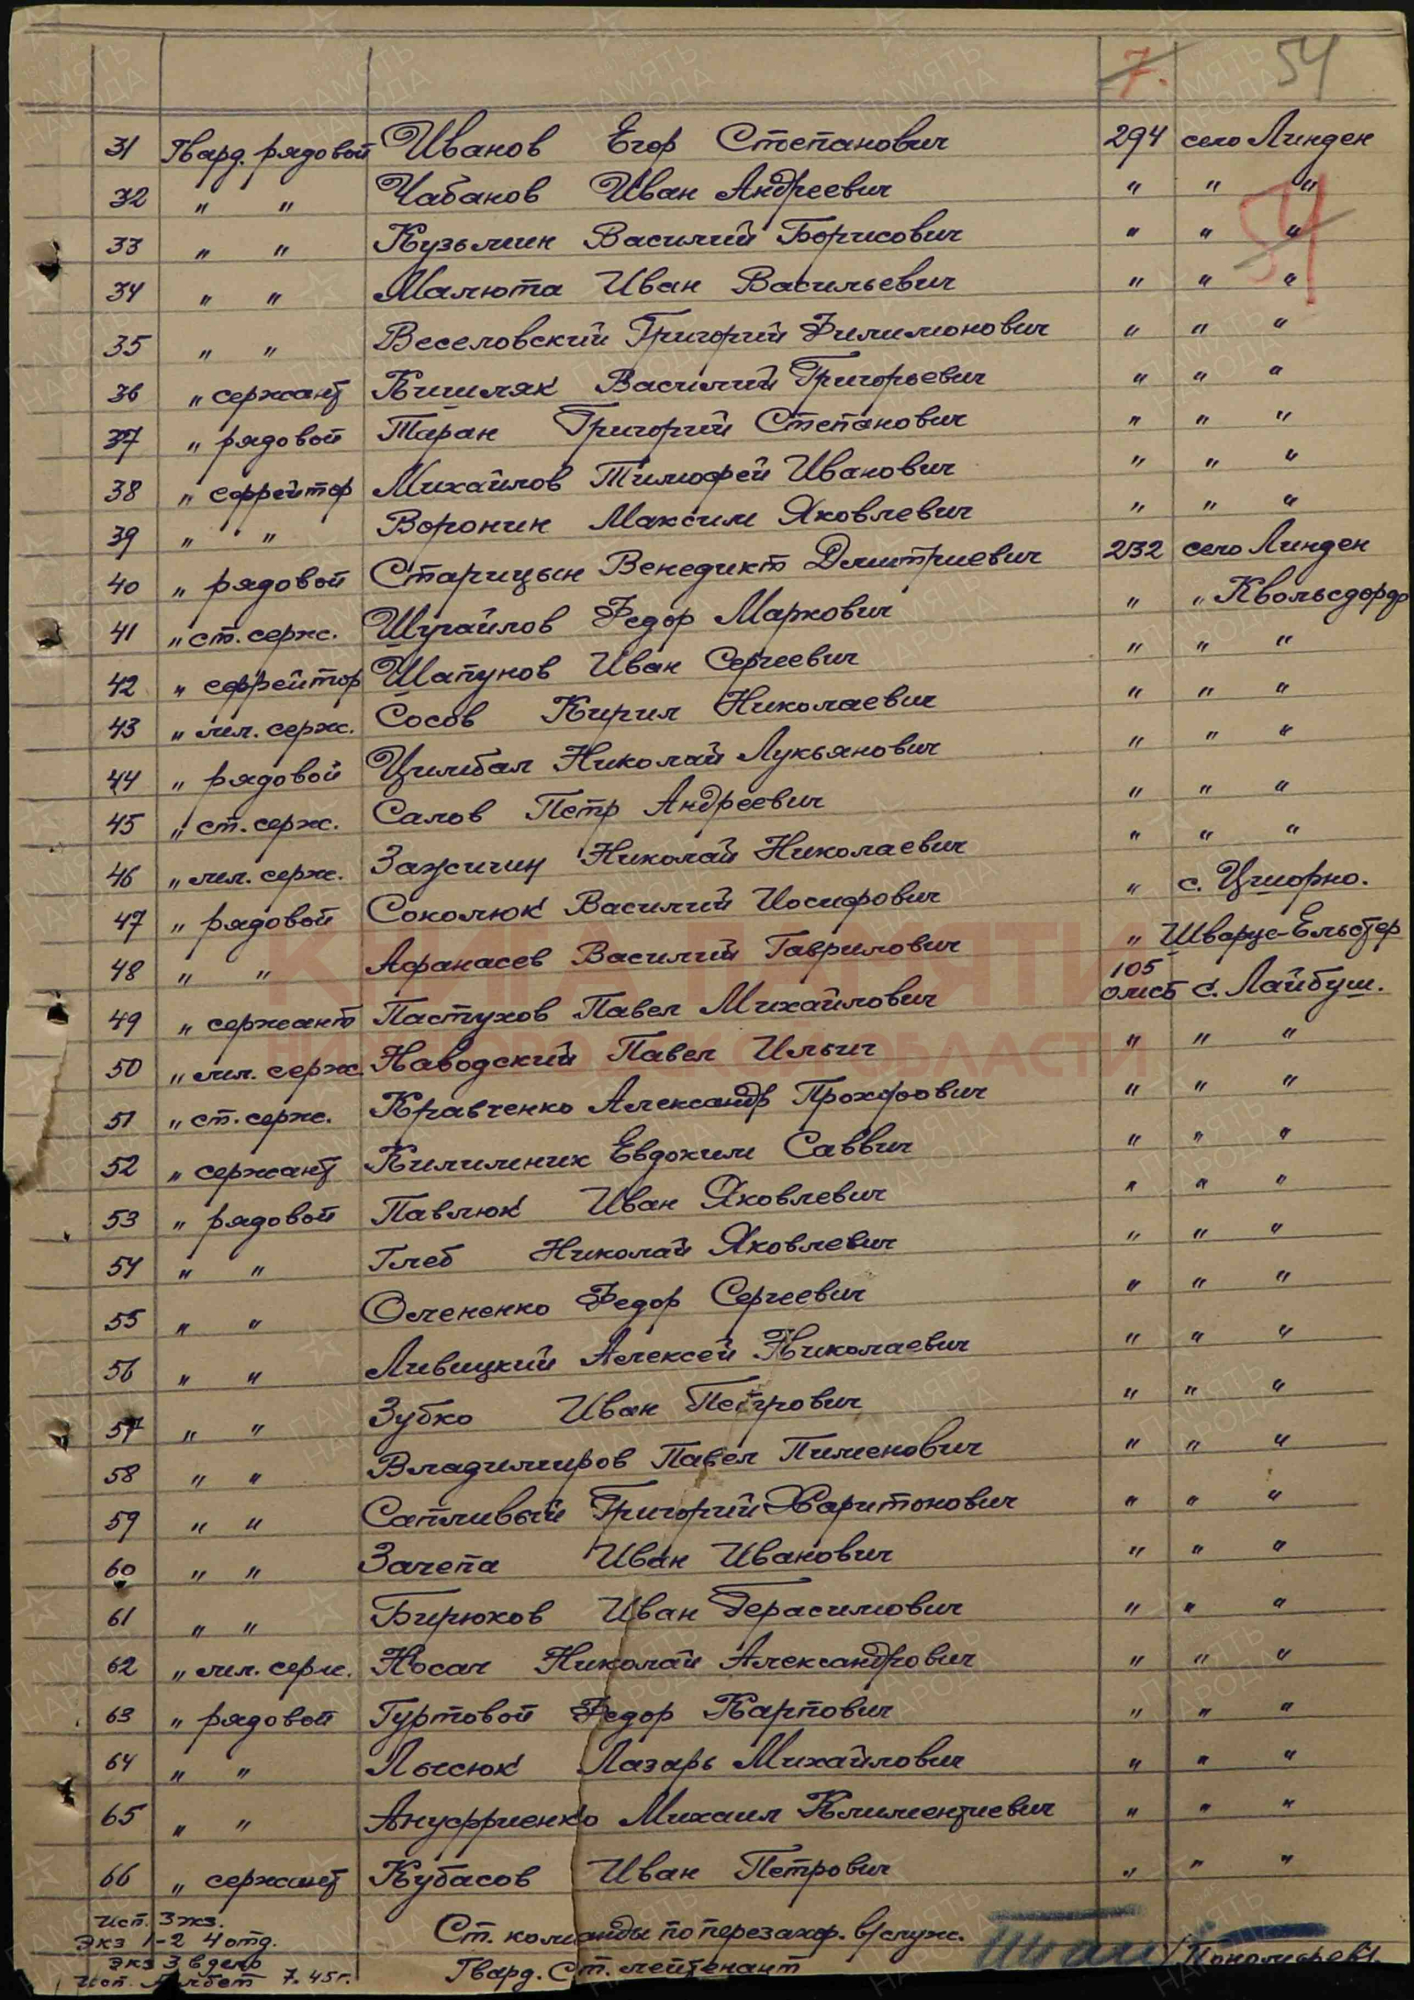 7. 54
31 Гвард. рядовой Иванов Егор Степанович 294 село Линден
32 " " Чабанов Иван Андреевич " " "
54
33 " " Кузьмин Василий Борисович " " "
34 " " Малюта Иван Васильевич " " "
35 " " Веселовский Григорий Филимонович " " "
36 " сержант Кишляк Василий Григорьевич " " "
37 " рядовой Таран Григорий Степанович " " "
38 " ефрейтор Михайлов Тимофей Иванович " " "
39 " " Воронин Максим Яковлевич " " "
40 " рядовой Старицын Венедикт Дмитриевич 232 село Линден
41 " ст. серж. Шугайлов Федор Маркович " " Квольсдорф
42 " ефрейтор Шапунов Иван Сергеевич " " "
43 " мл. серж. Сосов Кирил Николаевич " " "
44 " рядовой Цимбал Николай Лукьянович " " "
45 " ст. серж. Салов Петр Андреевич " " "
46 " мл. серж. Зажицин Николай Николаевич " " "
47 " рядовой Соколюк Василий Иосифович " с. Цшорно.
48 " " Афанасев Василий Гаврилович " Шварце-Ельстер
49 " сержант Пастухов Павел Михайлович 105 омсб с. Лайбуш.
50 " мл. серж. Наводский Павел Ильич " " "
51 " ст. серж. Кравченко Александр Прохорович " " "
52 " сержант Килимник Евдоким Саввич " " "
53 " рядовой Павлюк Иван Яковлевич " " "
54 " " Глеб Николай Яковлевич " " "
55 " " Омененко Федор Сергеевич " " "
56 " " Ливицкий Алексей Николаевич " " "
57 " " Зубко Иван Петрович " " "
58 " " Владимиров Павел Пименович " " "
59 " " Сапливый Григорий Харитонович " " "
60 " " Зачепа Иван Иванович " " "
61 " " Бирюков Иван Герасимович " " "
62 " мл. серж. Носач Николай Александрович " " "
63 " рядовой Гуртовой Федор Карпович " " "
64 " " Лысюк Лазарь Михайлович " " "
65 " " Ануфриенко Михаил Климентиевич " " "
66 " сержант Кубасов Иван Петрович " " "
Исп. 3 экз.
Экз 1-2 4 отд.
Экз 3 в дело
Исп. 7.45г.
Ст. команды по перезахор. в/служ.
Гвард. Ст. лейтенант /Пономарев/.
КНИГА ПАМЯТИ
НИЖЕГОРОДСКОЙ ОБЛАСТИ
ПАМЯТЬ НАРОДА